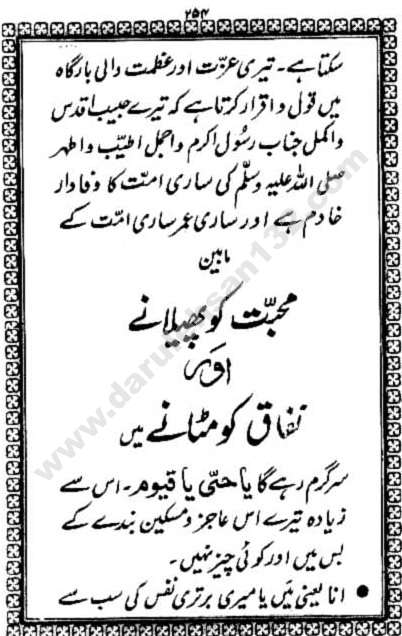 ۲۵۴
سکتا ہے۔ تیری عزّت اور عظمت والی بارگاہ
میں قول و اقرار کرتا ہے کہ تیرے حبیب اقدس
و اکمل جناب رسُول اکرم و اجمل اطیّب و اطہر
صلی اللہ علیہ وسلّم کی ساری امت کا وفادار
خادم ہے اور ساری عمر ساری امّت کے
مابین
محبّت کو پھیلانے
اور
نفاق کو مٹانے میں
سرگرم رہے گا یا حیّ یا قیوم۔ اس سے
زیادہ تیرے اس عاجز و مسکین بندے کے
بس میں اور کوئی چیز نہیں۔
● انا یعنی مَیں یا میری برتری نفس کی سب سے